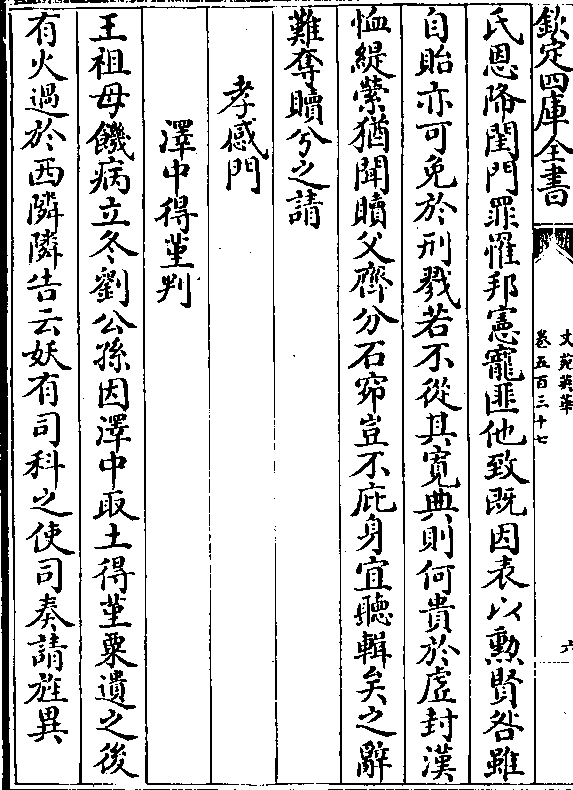 欽定四庫全書
文苑英華
卷五百三十七
六
氏恩降閨門罪罹邦憲寵匪他致既因表以勲賢咎雖
自貽亦可免於刑戮若不從其寛典則何貴於虚封漢
恤緹縈猶聞贖父齊分石窌豈不庇身宜聽輯矣之辭
難奪贖兮之請
孝感門
澤中得堇判
王祖母饑病立冬劉公孫因澤中取土得堇粟遺之後
有火過於西隣隣告云妖有司科之使司奏請旌異